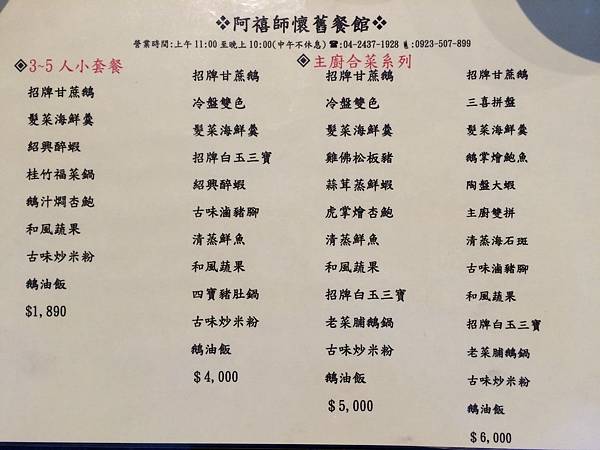 ❖阿禧師懷舊餐館❖
營業時間:上午11:00至晚上10:00(中午不休息)☎:04-2437-1928 :0923-507-899
◈3~5人小套餐
招牌甘蔗鵝
髮菜海鮮羹
紹興醉蝦
桂竹福菜鍋
鵝汁燜杏鮑
和風蔬果
古味炒米粉
鵝油飯
$1,890
招牌甘蔗鵝
冷盤雙色
髮菜海鮮羹
招牌白玉三寶
紹興醉蝦
古味滷豬腳
清蒸鮮魚
和風蔬果
四寶豬肚鍋
古味炒米粉
鵝油飯
$4,000
◈主廚合菜系列
招牌甘蔗鵝
冷盤雙色
髮菜海鮮羹
雞佛松板豬
蒜茸蒸鮮蝦
虎掌燴杏鮑
清蒸鮮魚
和風蔬果
招牌白玉三寶
老菜脯鵝鍋
古味炒米粉
鵝油飯
$5,000
招牌甘蔗鵝
三喜拼盤
髮菜海鮮羹
鵝掌燴鮑魚
陶盤大蝦
主廚雙拼
清蒸海石斑
古味滷豬腳
和風蔬果
招牌白玉三寶
老菜脯鵝鍋
古味炒米粉
鵝油飯
$6,000